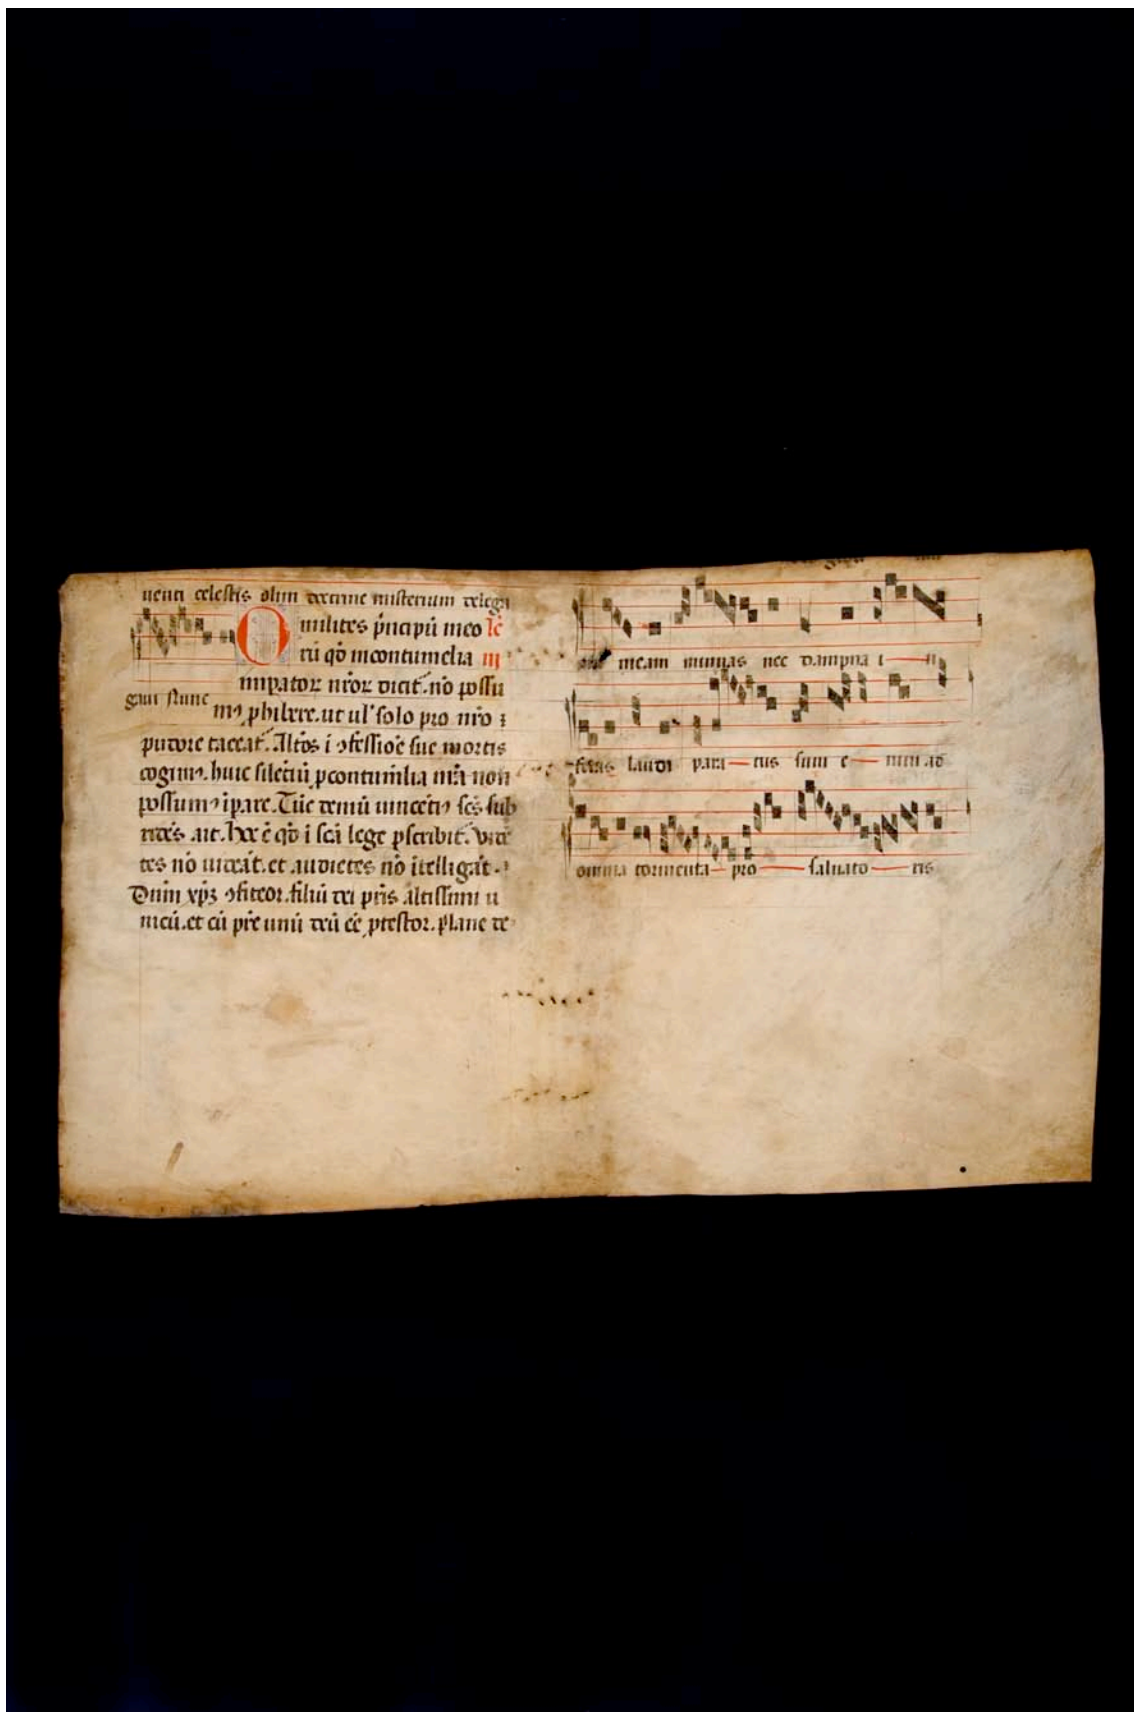 uenti celestis olim doctrine misterium delega
O milites p̄ncipū meo lc̄
rū qđ incontumelia iij
mpator nr̄or dicit. nō possu
gaui Nunc
mꝰ ꝓhibere. ut ul' solo pro nr̄o ⁊
pudore taceat. Altos i ꝯfessioē sue mortis
cogimꝰ. huic silētiū ꝓcontum̄lia nr̄a non
possumꝰ ipare. Tūc demū uincētiꝰ sc̄s sub
ridēs .ait. hec ē qđ i sc̄a lege ꝓscribit. Vidē
tes nō uideāt. et audietes nō itelligāt.
Dnm xp̄ꝫ ꝯfiteor. filiū dei pr̄is altissimi u
nicū. et cū pr̄e unū deū eē ꝓtestor. plane de
meam minuas nec dampna i n
feras laudi para tus sum e nim ad
omnia tormenta pro saluato ris